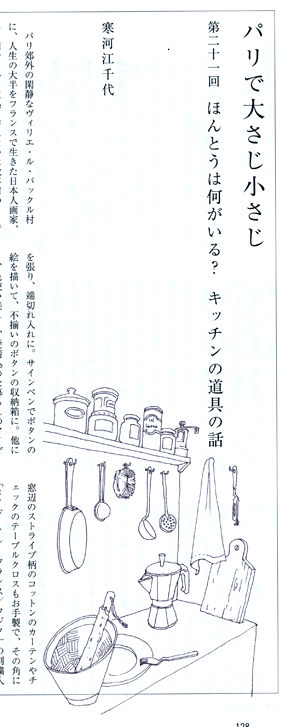 パリで大さじ小さじ
第二十一回 ほんとうは何がいる? キッチンの道具の話
寒河江千代
パリ郊外の閑静なヴィリエ・ル・バックル村
に、人生の大半をフランスで生きた日本人画家、
を張り、端切れ入れに。サインペンでボタンの
絵を描いて、不揃いのボタンの収納箱に。他に
窓辺のストライプ柄のコットンのカーテンやチ
ェックのテーブルクロスもお手製で、その角に
128